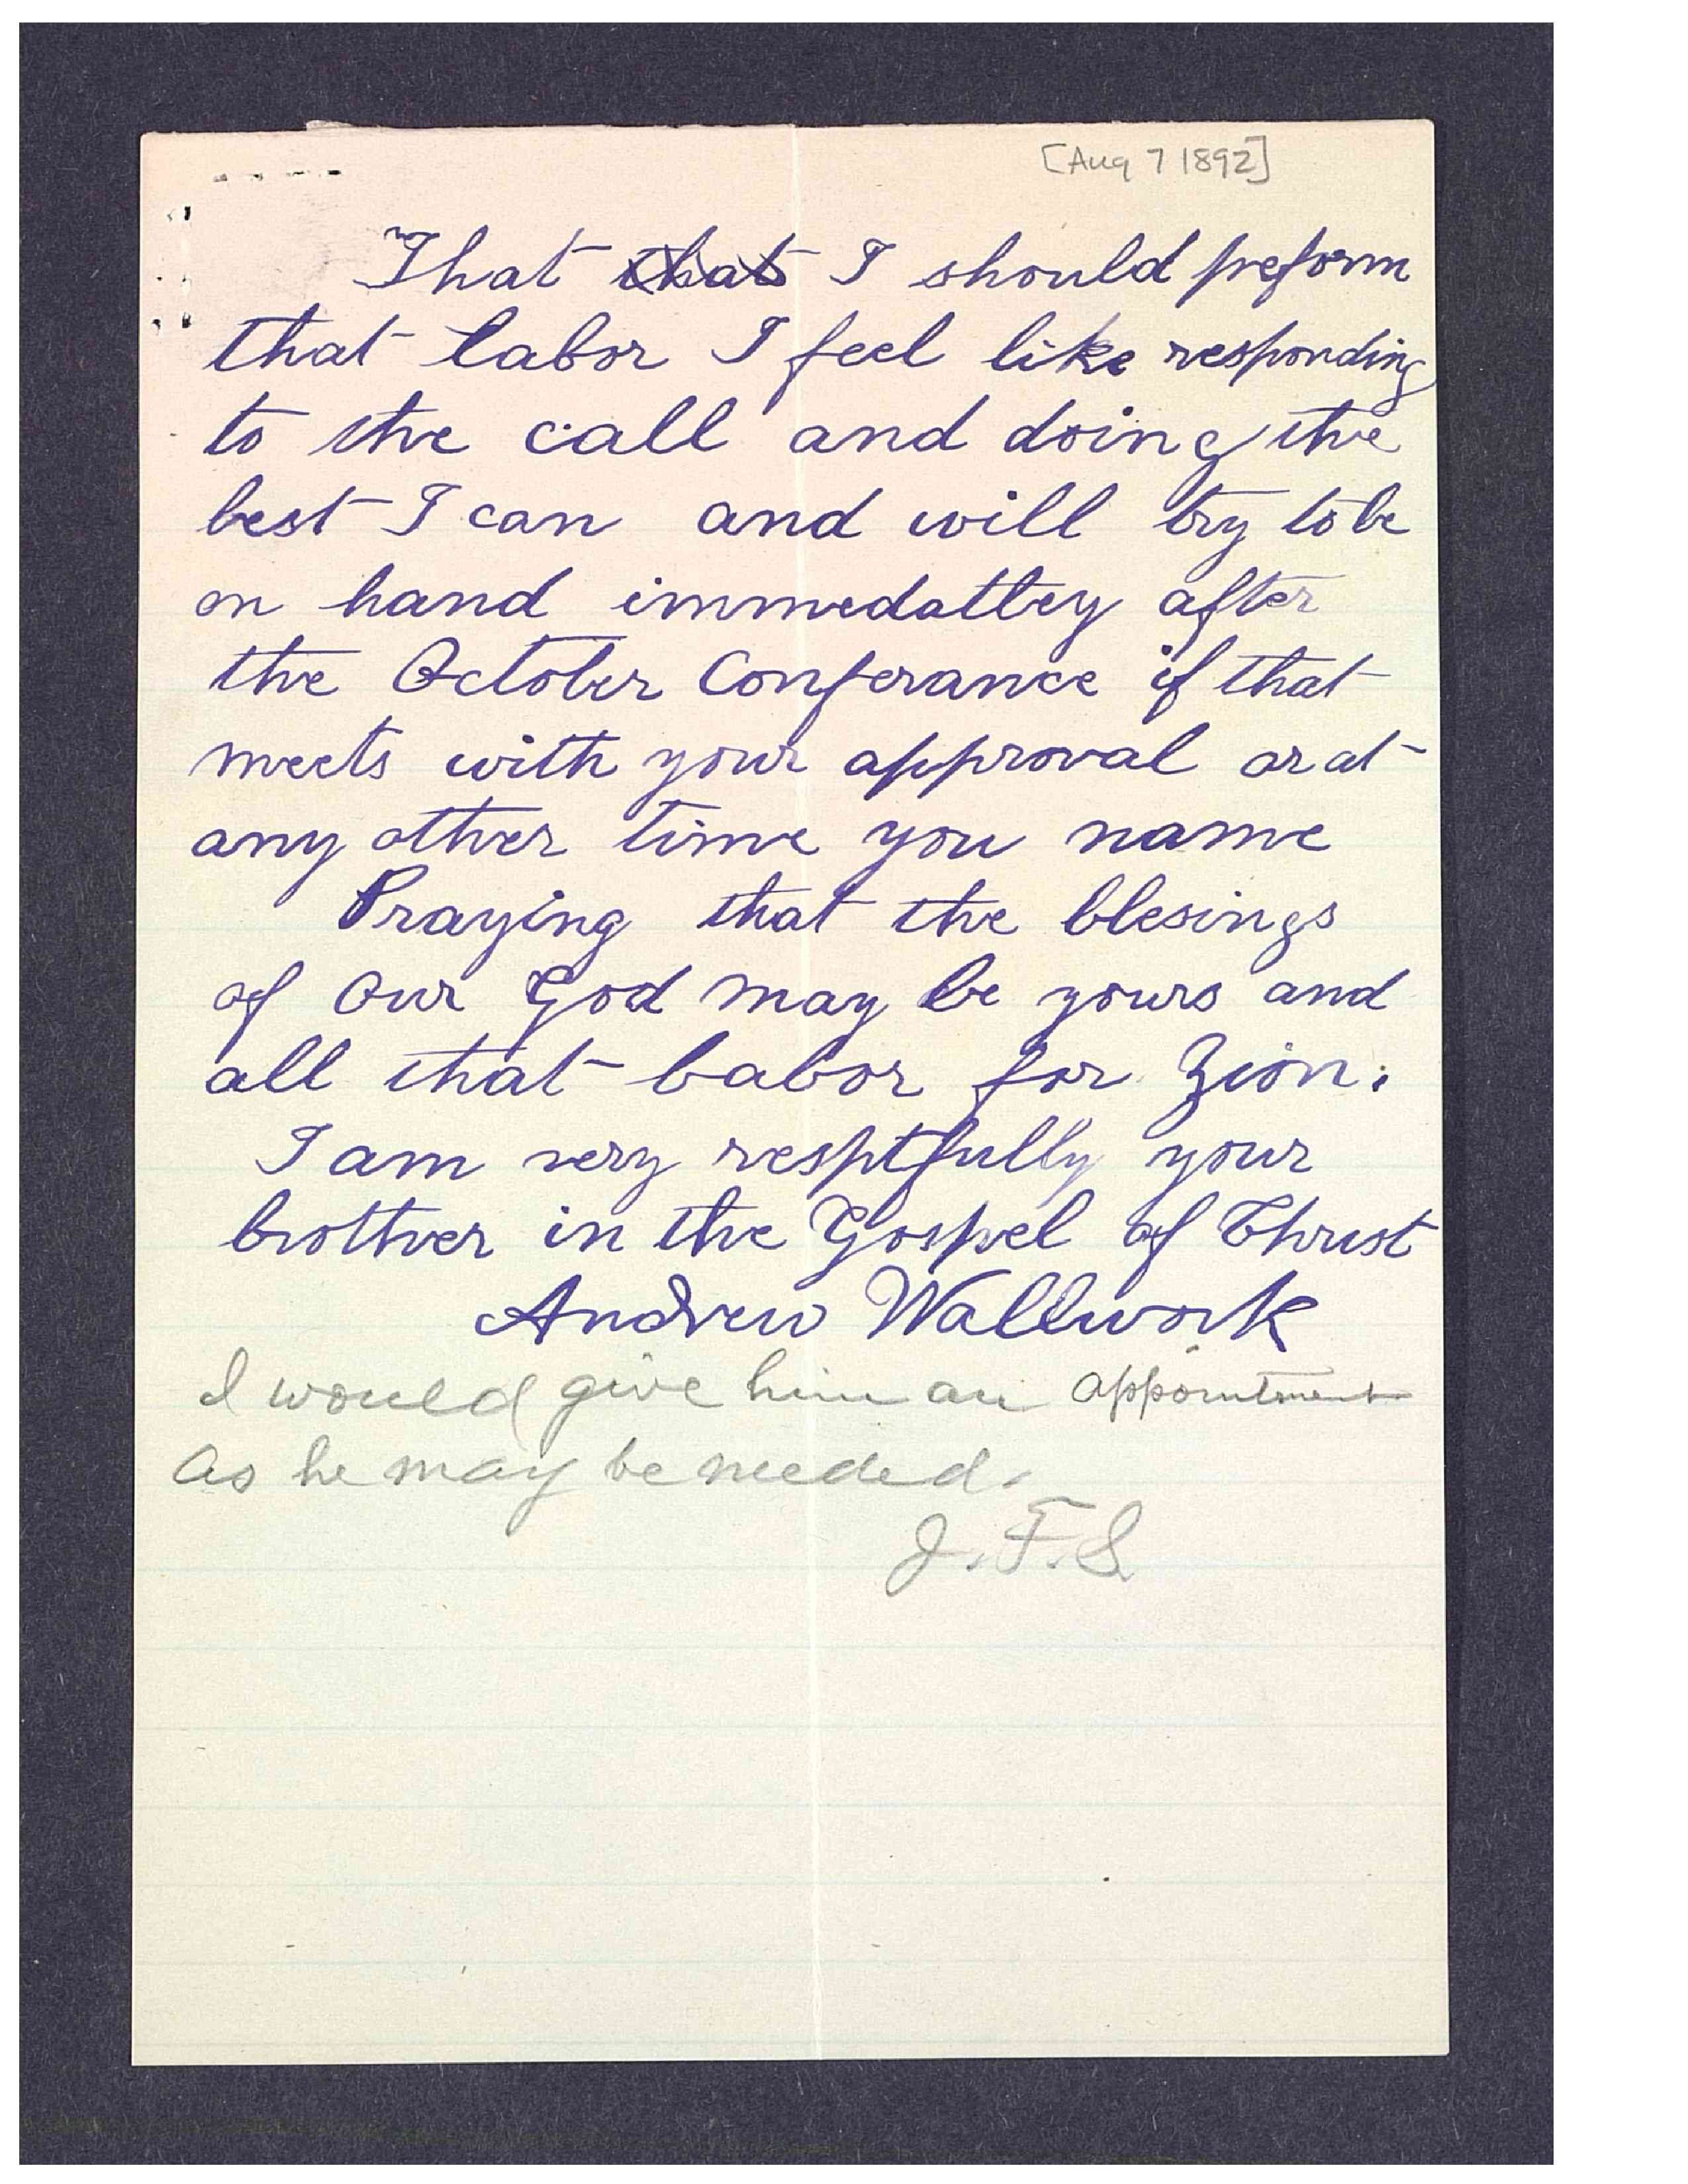 [Aug 7 1892]
That that I should preform
that labor I feel like responding
to the call and doing the
best I can and will try to be
on hand immedatley after
the October Conferance if that
meets with your approval or at
any other time you name
Praying that the blesings
of Our God may be yours and
all that labor for Zion.
I am very resptfully your
brother in the Gospel of Christ
Andrew Wallwork
I would give him an appointment
as he may be needed.
J.F.S.